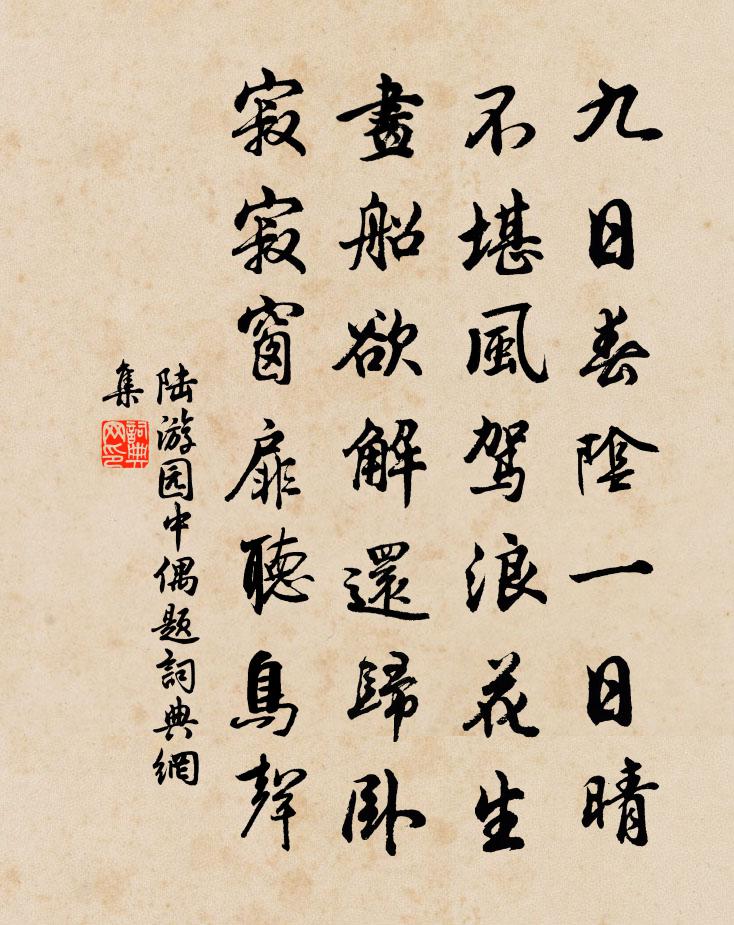 九日春陰一日晴
不堪風駕浪花生
畫船欲解還歸臥
寂寂窗扉聽鳥聲
陆游园中偶题詞典網
集
詞典
网印